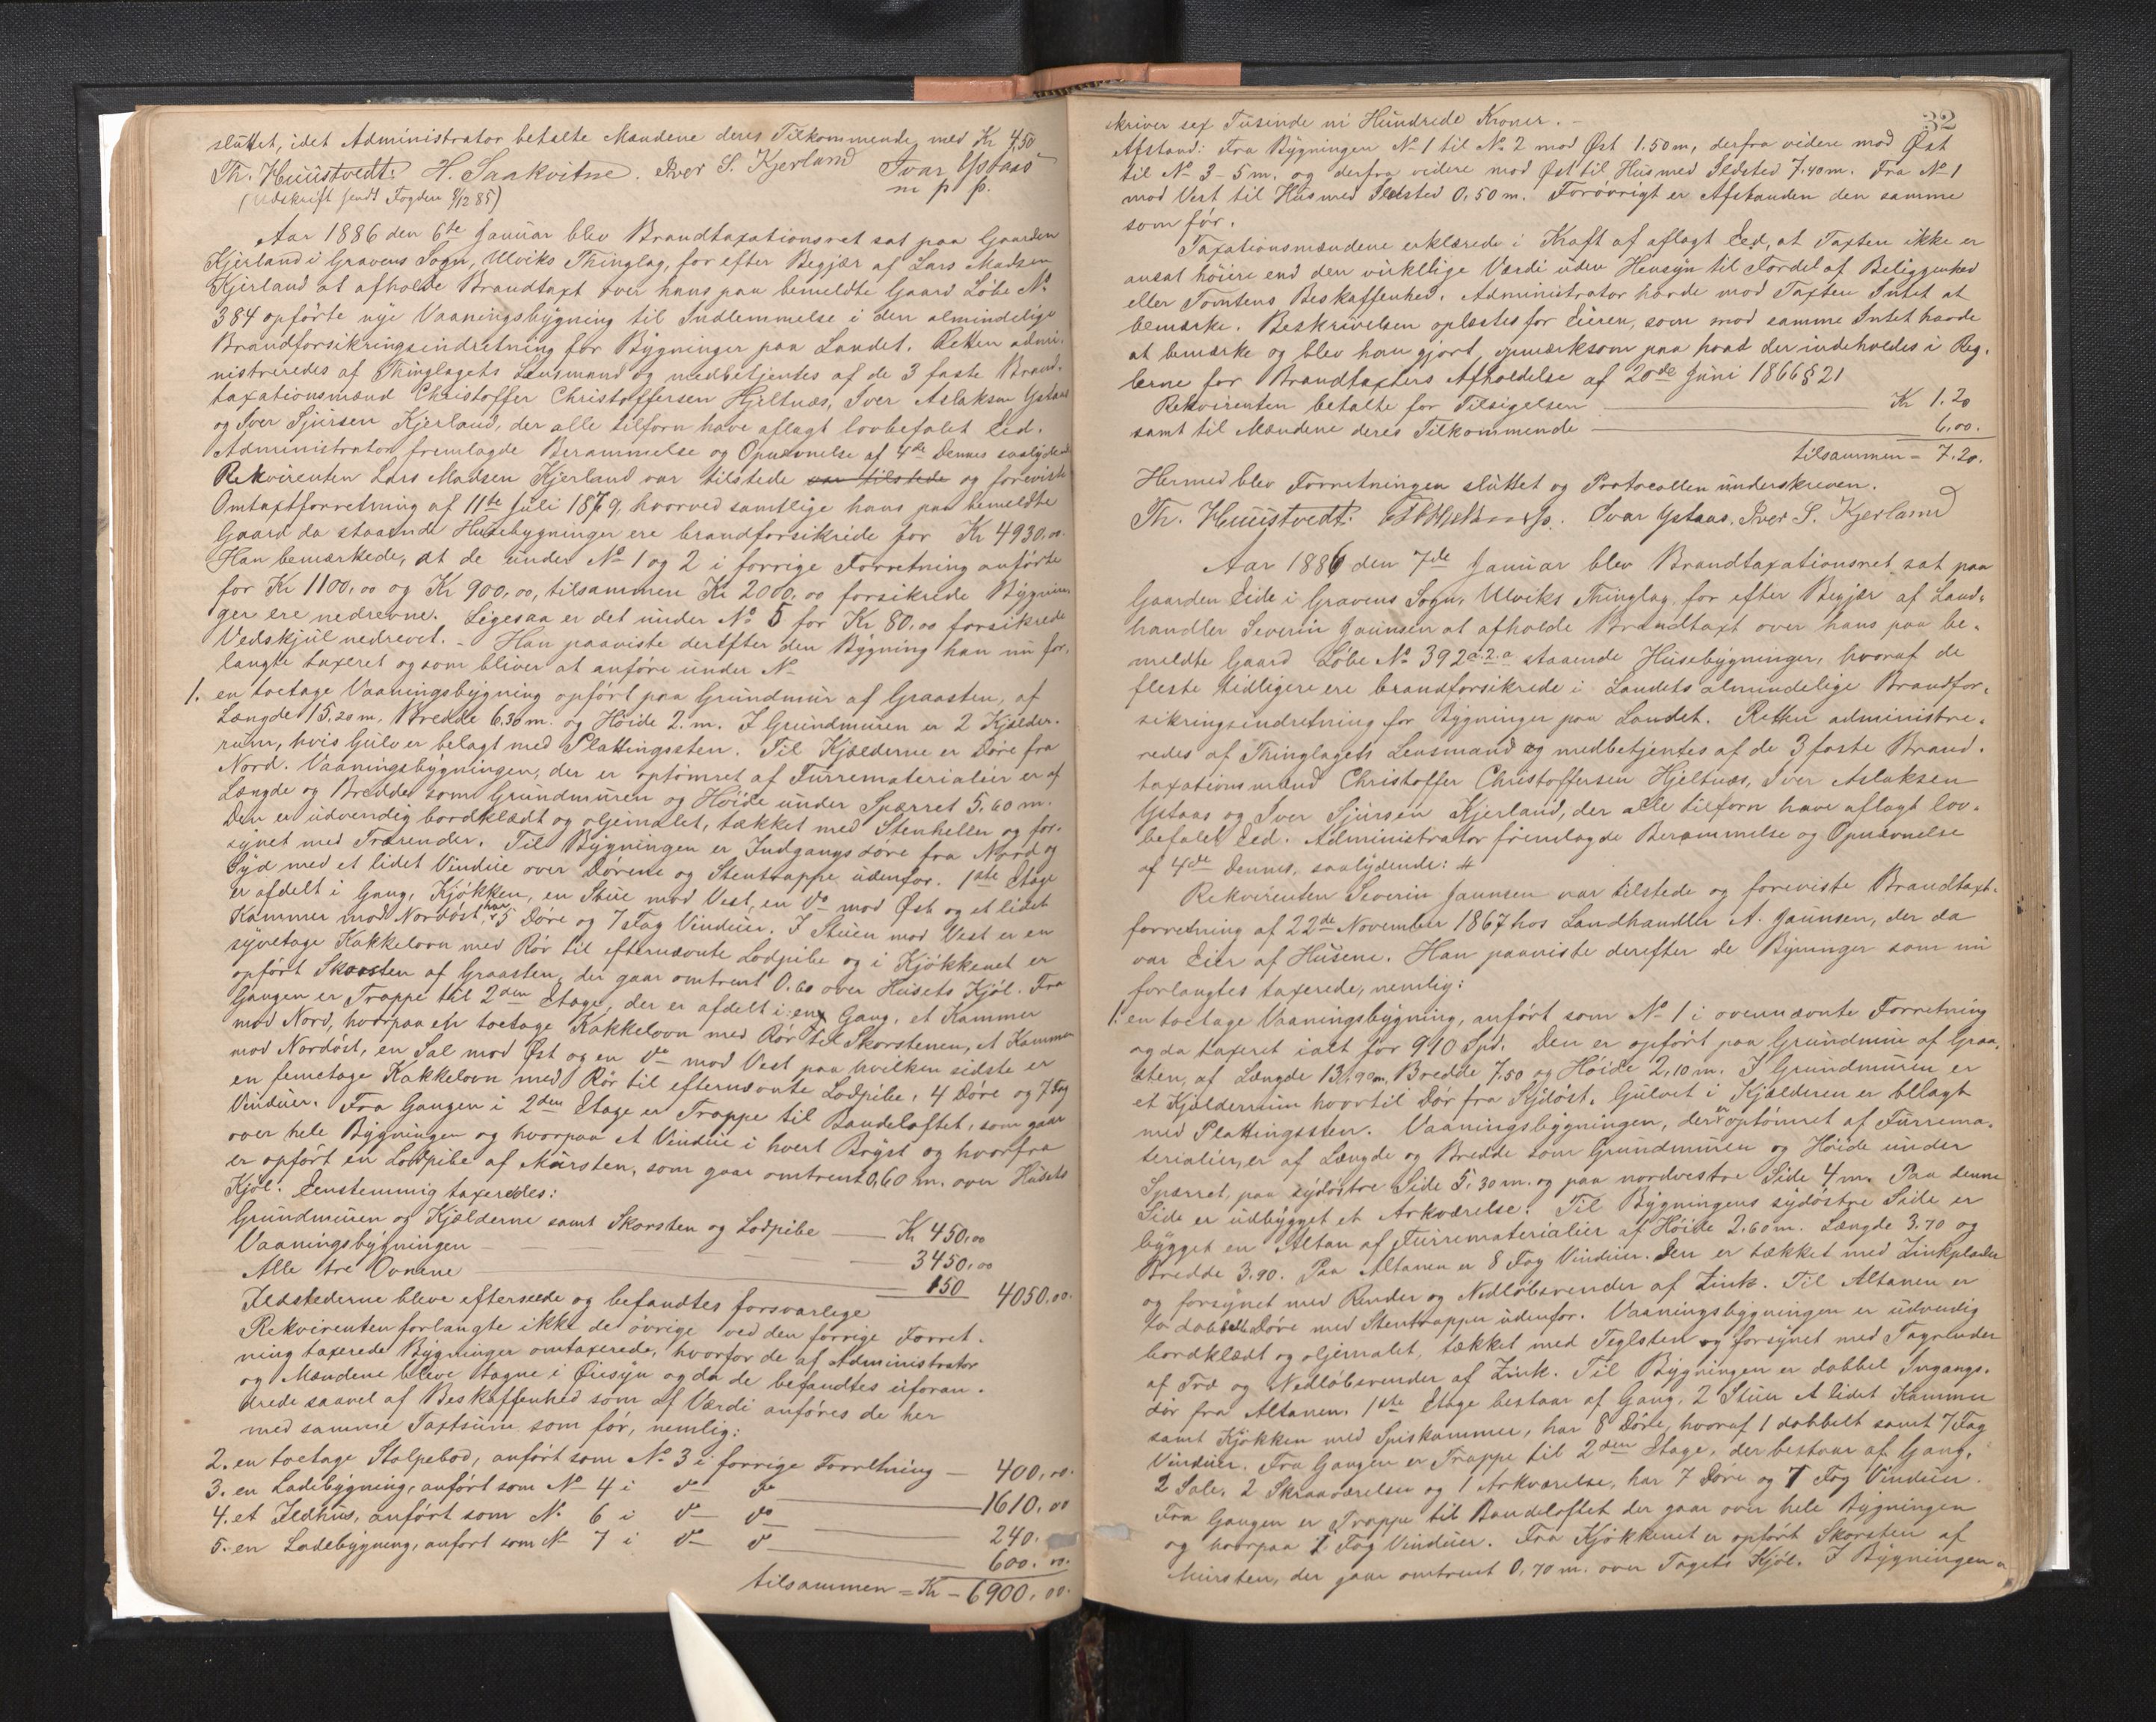 sluttet, idet Administrator betalte Mændene deres Tilkommende med Kr 4,50
Th. Huustvedt. H. Saakvitne. Iver S. Kjerland Ivar Ystaas
m p p.
(Udskrift sendt Fogden 9/12 85)
Aar 1886 den 6te Januar blev Brandtaxationsret sat paa Gaarden
Kjerland i Gravens Sogn, Ulviks Thinglag, for efter Begjær af Lars Madsen
Kjerland at afholde Brandtaxt over hans paa bemeldte Gaard Løbe No
384 opførte nye Vaaningsbygning til Indlemmelse i den almindelige
Brandforsikringsindretning for Bygninger paa Landet. Retten admi-
nistreredes af Thinglagets Lensmand og medbetjentes af de 3 faste Brand-
taxationsmænd Christoffer Christoffersen Hjeltnæs, Iver Aslaksen Ystaas
og Iver Sjursen Kjerland, der alle tilforn have aflagt lovbefalet Eed.
Administrator fremlagde Berammelse og Opnævnelse af 4de Dennes saalydende
Rekvirenten Lars Madsen Kjerland var tilstede var tilstede og foreviste
Omtaxtforretning af 11te Juli 1879, hvorved samtlige hans paa bemeldte
Gaard da staaende Husebygninger ere brandforsikrede for Kr 4930,00.
Han bemærkede, at de under No 1 og 2 i forrige Forretning anførte
for Kr 1100,00 og Kr 900,00, tilsammen Kr 2000,00 forsikrede Bygnin-
ger ere nedrevne. Ligesaa er det under No 5 for Kr 80,00 forsikrede
Vedskjul nedrevet. - Han paaviste derefter den Bygning han nu for-
langte taxeret og som bliver at anføre under No
1. en toetage Vaaningsbygning opført paa Grundmur af Graasten, af
Længde 15,20 m, Bredde 6.30 m. og Høide 2. m. I Grundmuren er 2 Kjelder-
rum, hvis Gulv er belagt med Plattingssten. Til Kjælderne er Døre fra
Nord. Vaaningsbygningen, der er optømret af Furrematerialier er af
Længde og Bredde som Grundmuren og Høide under Spærret 5,60 m.
Den er udvendig bordklædt og oljemalet, tækket med Stenheller og for-
synet med Trærender. Til Bygningen er Indgangsdøre fra Nord og
Syd med et lidet Vindue over Dørene og Stentrappe udenfor. 1ste Etage
er afdelt i Gang, Kjøkken, en Stue mod Vest, en do mod Øst og et lidet
Kammer mod Nordøst, har 5 Døre og 7 Fag Vinduer. I Stuen mod Vest er en
syvetage Kakkelovn med Rør til efternævnte Lodpibe og i Kjøkkenet er
opført Skorsten af Graasten, der gaar omtrent 0.60 over Husets Kjøl. Fra
Gangen er Trappe til 2den Etage, der er afdelt i en Gang, et Kammer
mod Nord, hvorpaa en toetage Kakkelovn med Rør til Skorstenen, et Kammer
mod Nordøst, en Sal mod Øst og en do mod Vest paa hvilken sidste er
en femetage Kakkelovn med Rør til efternævnte Lodpibe, 4 Døre og 7 Fag
Vinduer. Fra Gangen i 2den Etage er Trappe til Bandeloftet, som gaar
over hele Bygningen og hvorpaa et Vindue i hvert Bryst og hvorfra
er opført en Lodpibe af Mursten, som gaar omtrent 0,60 m. over Husets
Kjøl. Eenstemmig taxeredes:
Grundmuren og Kjælderne samt Skorsten og Lodpibe — Kr 450,00
Vaaningsbygningen — 3450,00
Alle tre Ovnene — 150 4050,00.
Ildstederne bleve efterseede og befandtes forsvarlige
Rekvirenten forlangte ikke de øvrige ved den forrige Forret-
ning taxerede Bygninger omtaxerede, hvorfor de af Administrator
og Mændene bleve tagne i Øiesyn og da de befandtes uforan-
drede saavel af Beskaffenhed som af Værdi anføres de her
med samme Taxtsum som før, nemlig:
2. en toetage Stolpebod, anført som No 3 i forrige Forretning — 400,00.
3. en Ladebygning, anført som No 4 i do do — 1610,00
4. et Ildhus, anført som No 6 i do do — 240.
5. en Ladebygning, anført som No 7 i do do — 600.00.
tilsammen = Kr - 6900,00.
32
skriver sex Tusinde ni Hundrede Kroner. -
Afstand: Fra Bygningen No 1 til No 2 mod Øst 1.50 m, derfra videre mod Øst
til No 3 - 5 m. og derfra videre mod Øst til Hus med Ildsted 7.40 m. Fra No 1
mod Vest til Hus med Ildsted 0,50 m. Forøvrigt er Afstanden den samme
som før.
Taxationsmændene erklærede i Kraft af aflagt Eed, at Taxten ikke er
ansat høiere end den virkelige Værdi uden Hensyn til Fordel af Beliggenhed
eller Tomtens Beskaffenhed. Administrator havde mod Taxten Intet at
bemærke. Beskrivelsen oplæstes for Eieren, som mod samme Intet havde
at bemærke og blev han gjort opmærksom paa hvad der indeholdes i Reg-
lerne for Brandtaxters Afholdelse af 20de Juni 1866 § 21
Rekvirenten betalte for Tilsigelsen — Kr 1.20
samt til Mændene deres Tilkommende — 6,00.
tilsammen - 7.20.
Hermed blev Forretningen sluttet og Protocollen underskreven.
Th. Huustvedt. Ivar Ystaas. Iver S. Kjerland
Aar 1886 den 7de Januar blev Brandtaxationsret sat paa
Gaarden Eide i Gravens Sogn, Ulviks Thinglag for efter Begjær af Land-
handler Severin Jaunsen at afholde Brandtaxt over hans paa be-
meldte Gaard Løbe No 392 a.2.a staaende Husebygninger, hvoraf de
fleste tidligere ere brandforsikrede i Landets almindelige Brandfor-
sikringsindretning for Bygninger paa Landet. Retten administre-
redes af Thinglagets Lensmand og medbetjentes af de 3 faste Brand-
taxationsmænd Christoffer Christoffersen Hjeltnæs, Iver Aslaksen
Ystaas og Iver Sjursen Kjerland, der alle tilforn have aflagt lov-
befalet Eed. Administrator fremlagde Berammelse og Opnævnelse
af 4de Dennes, saalydende: #
Rekvirenten Severin Jaunsen var tilstede og foreviste Brandtaxt-
forretning af 22de November 1867 hos Landhandler A. Jaunsen, der da
var Eier af Husene. Han paaviste derefter de Bygninger som nu
forlangtes taxerede, nemlig:
1. en toetage Vaaningsbygning, anført som No 1 i ovennævnte Forretning
og da taxeret ialt for 910 Spd. Den er opført paa Grundmur af Graa-
sten, af Længde 13,90 m, Bredde 7.50 og Høide 2,10 m. I Grundmuren er
et Kjælderrum hvortil Dør fra Sydøst. Gulvet i Kjælderen er belagt
med Plattingssten. Vaaningsbygningen, der er optømret af Furrema-
terialier, er af Længde og Bredde som Grundmuren og Høide under
Spærret, paa sydøstre Side 5.30 m. og paa nordvestre Side 4 m. Paa denne
Side er udbygget et Arkværelse. Til Bygningens sydøstre Side er
bygget en Altan af Furrematerialier af Høide 2.60 m. Længde 3.70 og
Bredde 3.90. Paa Altanen er 8 Fag Vinduer. Den er tækket med Zinkplader
og forsynet med Render og Nedløbsrender af Zink. Til Altanen er
to dobbelte Døre med Stentrapper udenfor. Vaaningsbygningen er udvendig
bordklædt og oljemalet, tækket med Teglsten og forsynet med Tagrender
af Træ og Nedløbsrender af Zink. Til Bygningen er dobbel Ingangs-
dør fra Altanen. 1ste Etage bestaar af Gang, 2 Stuer et lidet Kammer
samt Kjøkken med Spiskammer, har 8 Døre, hvoraf 1 dobbelt samt 7 Fag
Vinduer. Fra Gangen er Trappe til 2den Etage, der bestaar af Gang,
2 Sale, 2 Skraaværelser og 1 Arkværelse, har 7 Døre og 7 Fag Vinduer.
Fra Gangen er Trappe til Bandeloftet der gaar over hele Bygningen
og hvorpaa 1 Fag Vinduer. Fra Kjøkkenet er opført Skorsten af
Mursten, der gaar omtrent 0,70 m. over Tagets Kjøl. I Bygningen er